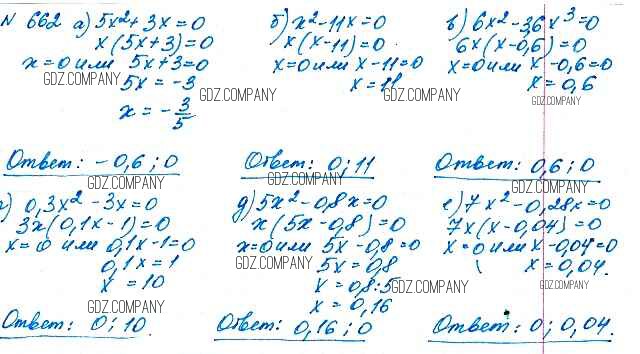 N 662 а) 5x² + 3x = 0
x(5x+3) = 0
x = 0 или 5x+3=0
5x = -3
x = -3/5
Ответ: -0,6; 0
б) x² - 11x = 0
x(x-11) = 0
x = 0 или x-11=0
x = 11
Ответ: 0; 11
в) 6x² - 3,6x³ = 0
6x(x-0,6) = 0
x=0 или x-0,6=0
x = 0,6
Ответ: 0,6; 0
г) 0,3x² - 3x = 0
3x(0,1x-1) = 0
x = 0 или 0,1x-1=0
0,1x = 1
x = 10
Ответ: 0; 10
д) 5x² - 0,8x = 0
x(5x-0,8) = 0
x=0 или 5x-0,8=0
5x = 0,8
x = 0,8:5
x = 0,16
Ответ: 0,16; 0
е) 7x² - 0,28x = 0
7x(x-0,04) = 0
x=0 или x-0,04=0
x = 0,04.
Ответ: 0; 0,04.
GDZ.COMPANY
GDZ.COMPANY
GDZ.COMPANY
GDZ.COMPANY
GDZ.COMPANY
GDZ.COMPANY
GDZ.COMPANY
GDZ.COMPANY
GDZ.COMPANY
GDZ.COMPANY
GDZ.COMPANY